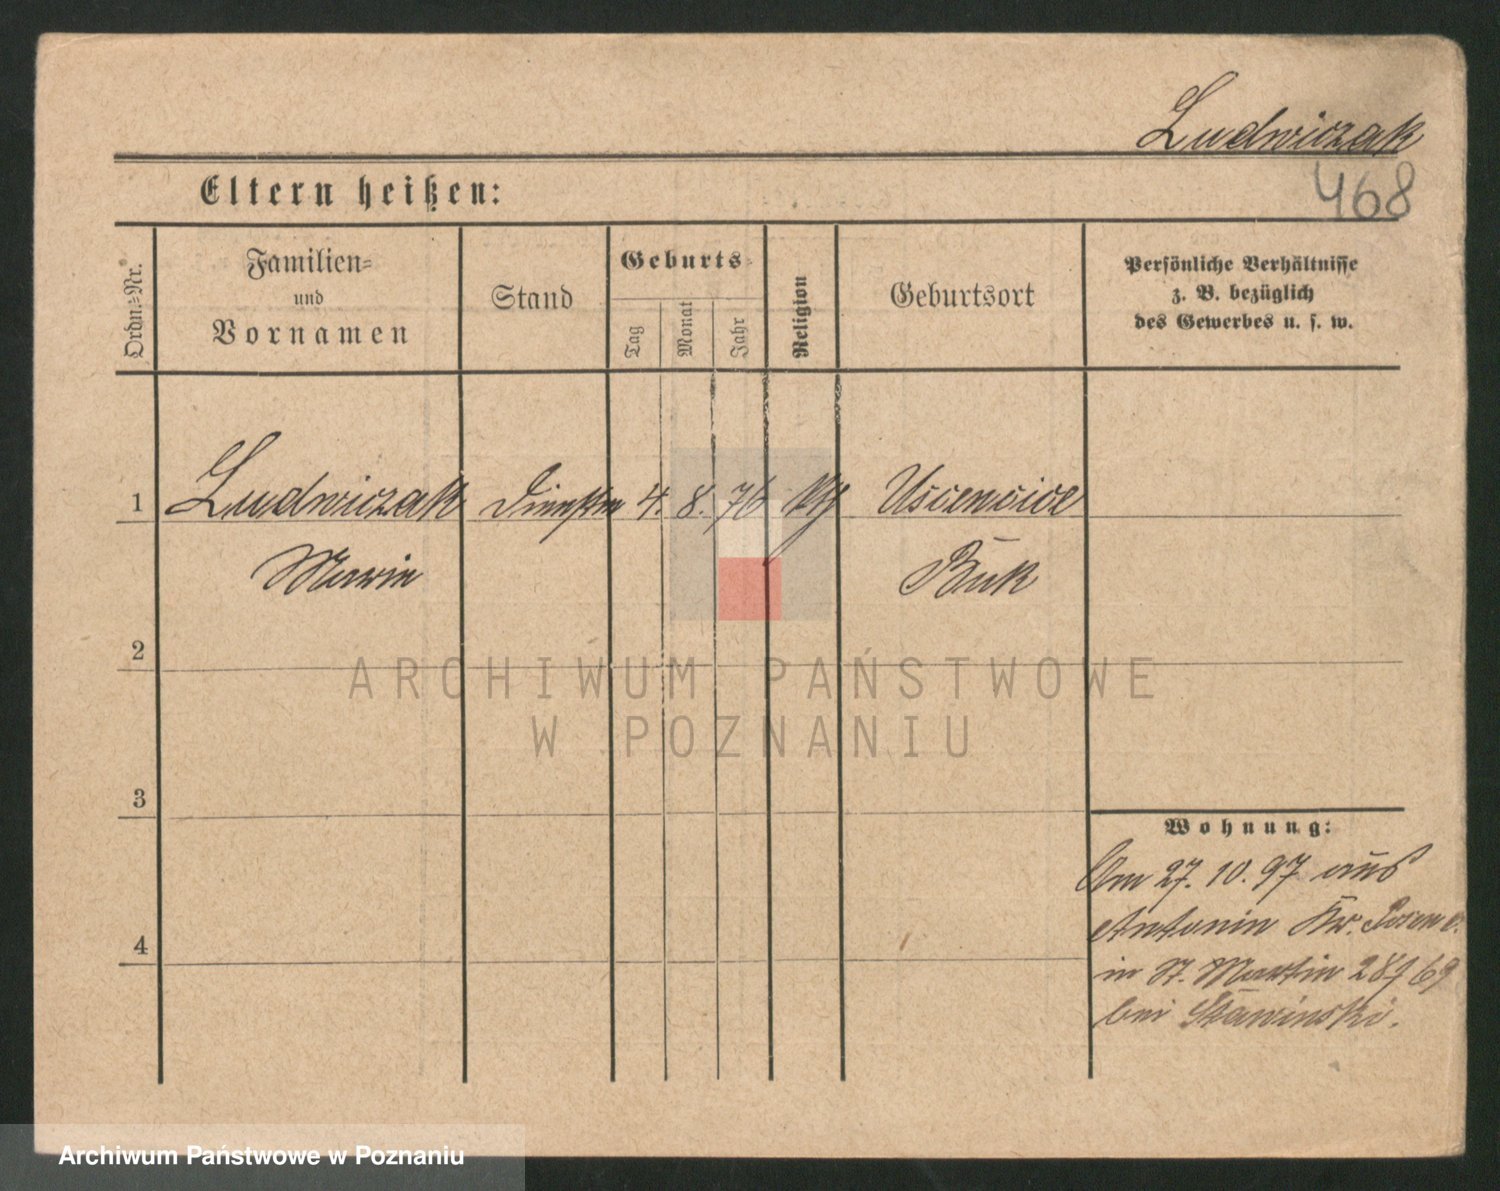 Ludwiczak
468
Eltern heißen:
Ordn.=Nr.
Familien=
und
Vornamen
Stand
Geburts=
Tag
Monat
Jahr
Religion
Geburtsort
Persönliche Verhältnisse
z. B. bezüglich
des Gewerbes u. s. w.
1 Ludwiczak 4. 8. 76 Uscencice
Marie Buk
2
ARCHIWUM PAŃSTWOWE
W POZNANIU
3
Wohnung:
Am 27. 10. 97 aus
Antonin Kr. Posen O.
in St. Martin
bei Stawinski.
4
Archiwum Państwowe w Poznaniu